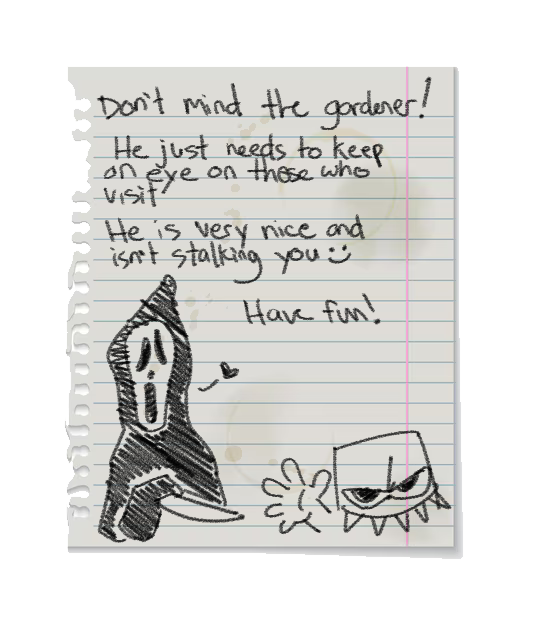 Don't mind the gardener!
He just needs to keep
an eye on those who
visit
He is very nice and
isn't stalking you :)
Have fun!